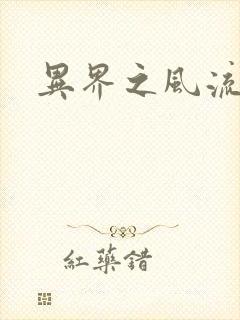 異界之風流
紅藥錯